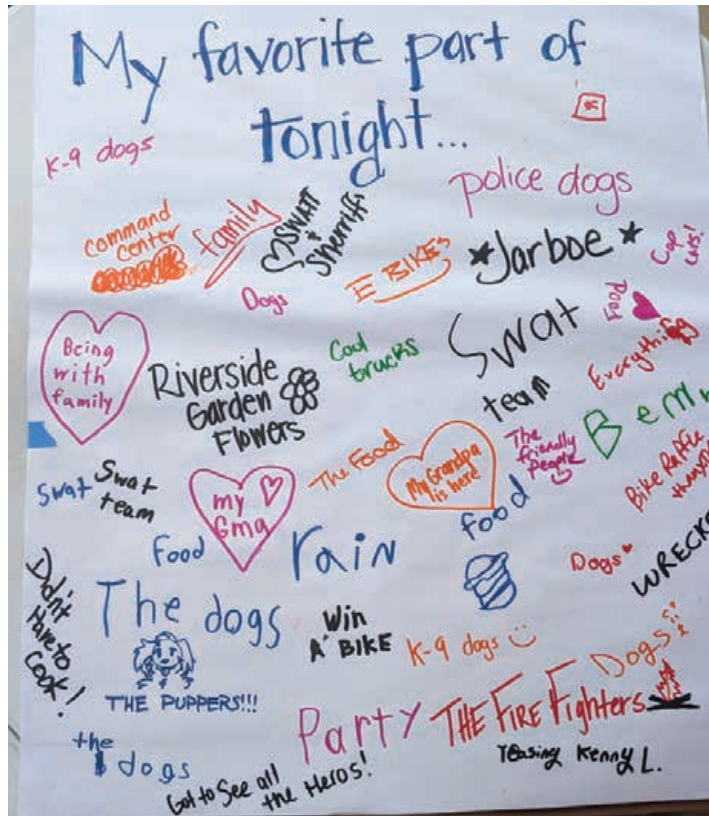 My favorite part of
tonight...
K-9 dogs
police dogs
command
center
family
SWATT
&
Sherriffs
E BIKES
*Jarboe*
Cop
Cars!
Dogs
Being
with
family
Riverside
Garden
Flowers
Cool
trucks
Swat
team
Food
Everything
The Food
My Grandpa
is here
The
friendly
People
Bike Raffle
Swat
Swat
team
my
Gma
food
Food
rain
Dogs
WRECKE
Didn't
Have to
Cook!
The dogs
Win
A BIKE
K-9 dogs
Dogs
THE PUPPERS!!!
Party
THE FIRE Fighters
the
dogs
Teasing Kenny L.
Got to See all
the Heros!